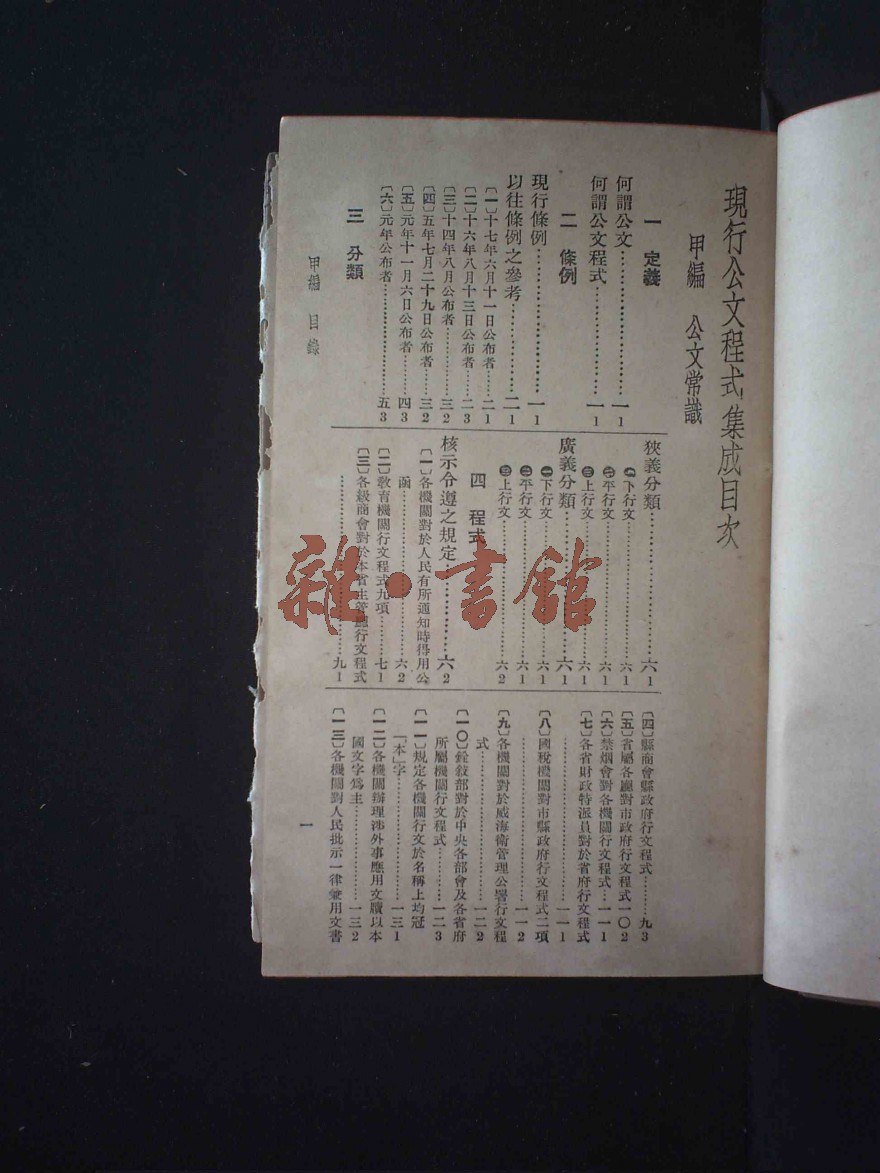 現行公文程式集成目次
甲編 公文常識
一 定義
何謂公文…………一1
何謂公文程式…………一1
二 條例
現行條例…………一1
以往條例之參考…………二1
〔一〕十七年六月十一日公布者……二1
〔二〕十六年八月十三日公布者……二3
〔三〕十四年八月公布者…………三2
〔四〕五年七月二十九日公布者……三2
〔五〕元年十一月六日公布者……四3
〔六〕元年公布者…………五3
三 分類
狹義分類…………六1
㊀下行文…………六1
㊁平行文…………六1
㊂上行文…………六1
廣義分類…………六1
㊀下行文…………六1
㊁平行文…………六1
㊂上行文…………六2
四 程式
核示令遵之規定…………六2
〔一〕各機關對於人民有所通知時得用公
函…………六2
〔二〕教育機關行文程式九項……七1
〔三〕各級商會對於本省主管廳行文程式
…………九1
〔四〕縣商會縣政府行文程式……九3
〔五〕省屬各廳對市政府行文程式一〇2
〔六〕禁烟會對各機關行文程式…一一1
〔七〕各省財政特派員對於省府行文程式
…………一一1
〔八〕國稅機關對市縣政府行文程式二項
…………一一2
〔九〕各機關對於威海衛管理公署行文程
式…………一二2
〔一〇〕銓敘部對於中央各部會及各省府
所屬機關行文程式……一二3
〔一一〕規定各機關行文於名稱上均冠
「本」字…………一三1
〔一二〕各機關辦理涉外事應用文牘以本
國文字爲主…………一三2
〔一三〕各機關對人民批示一律兼用文書
甲編 目錄
一
雜·書館